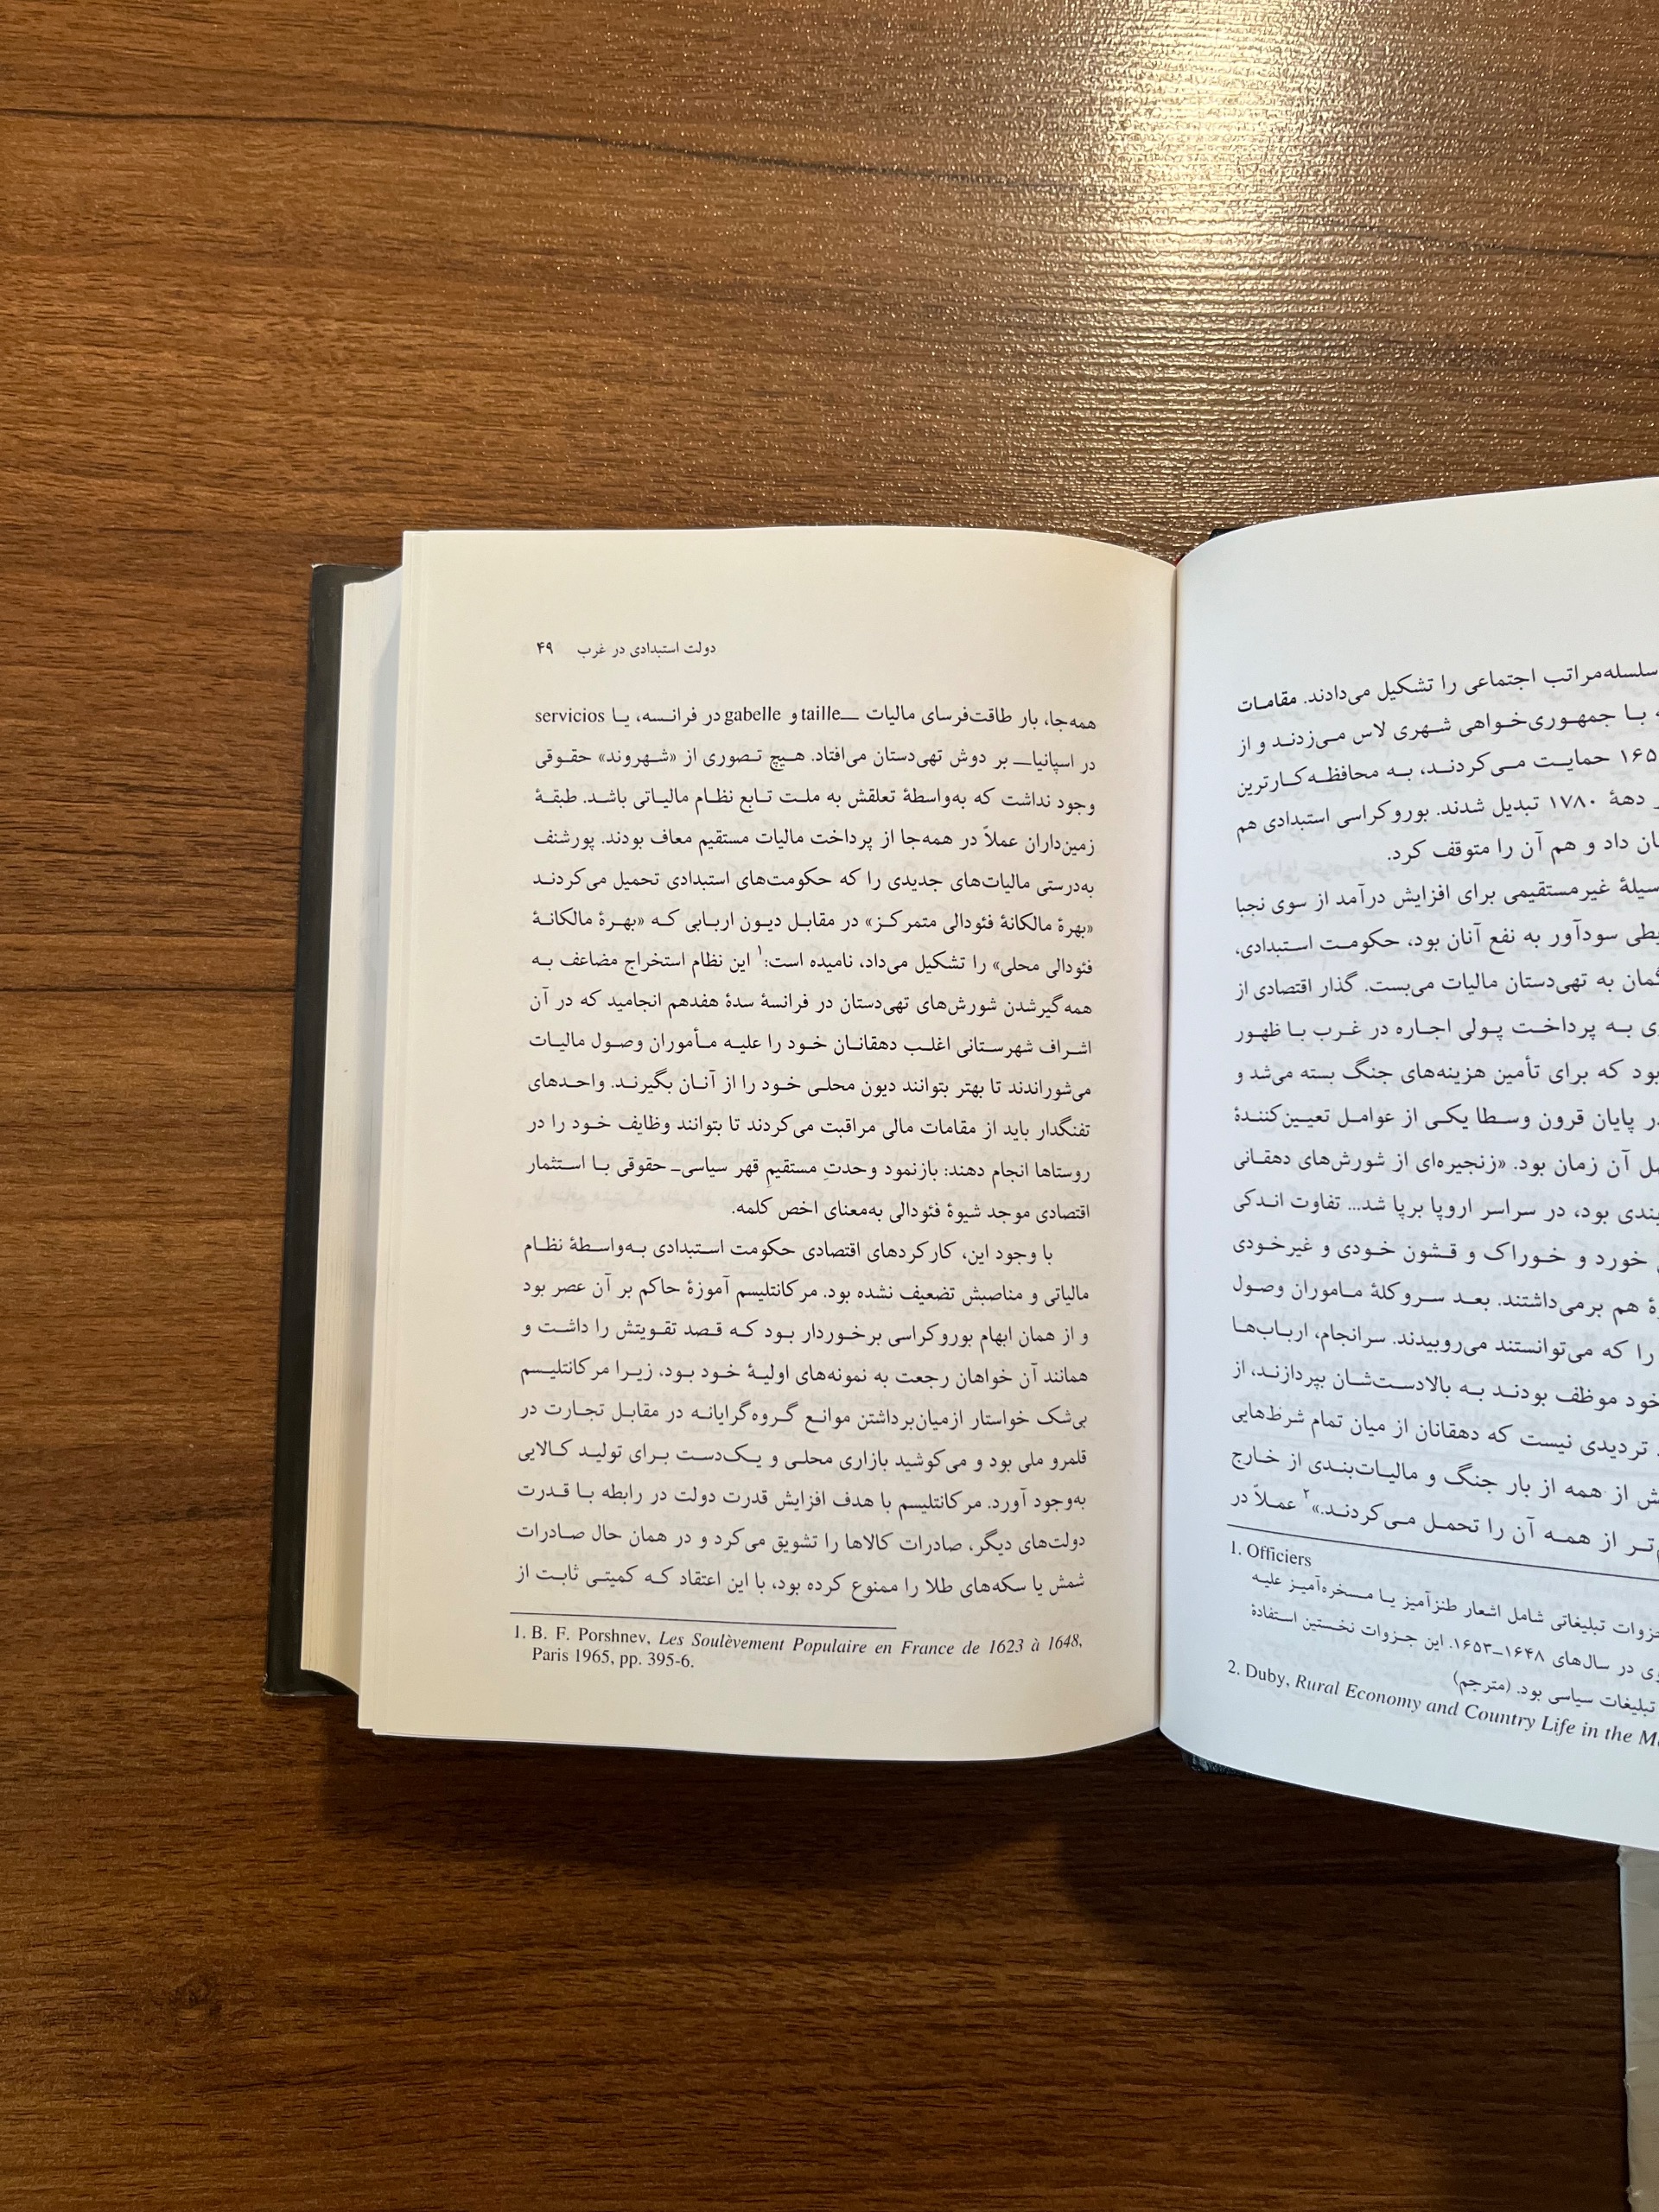 سلسله‌مراتب اجتماعی را تشکیل می‌دادند. مقامات
با جمهوری‌خواهی شهری لاس می‌زدند و از
حمایت می‌کردند، به محافظه‌کارترین
دههٔ ۱۷۸۰ تبدیل شدند. بوروکراسی استبدادی هم
داد و هم آن را متوقف کرد.
غیرمستقیمی برای افزایش درآمد از سوی نجبا
سودآور به نفع آنان بود، حکومت استبدادی،
به تهی‌دستان مالیات می‌بست. گذار اقتصادی از
به پرداخت پولی اجاره در غرب با ظهور
بود که برای تأمین هزینه‌های جنگ بسته می‌شد و
در پایان قرون وسطا یکی از عوامل تعیین‌کنندهٔ
آن زمان بود. «زنجیره‌ای از شورش‌های دهقانی
بود، در سراسر اروپا برپا شد... تفاوت اندکی
خورد و خوراک و قشون خودی و غیرخودی
هم برمی‌داشتند. بعد سروکلهٔ ماموران وصول
را که می‌توانستند می‌روبیدند. سرانجام، ارباب‌ها
خود موظف بودند به بالادست‌شان بپردازند، از
تردیدی نیست که دهقانان از میان تمام شرط‌هایی
از همه از بار جنگ و مالیات‌بندی از خارج
از همه آن را تحمل می‌کردند.»۲ عملاً در
1. Officiers
جزوات تبلیغاتی شامل اشعار طنزآمیز یا مسخره‌آمیز علیه
در سال‌های ۱۶۴۸ــ۱۶۵۳. این جزوات نخستین استفادهٔ
تبلیغات سیاسی بود. (مترجم)
2. Duby, Rural Economy and Country Life in the
دولت استبدادی در غرب ۴۹
همه‌جا، بار طاقت‌فرسای مالیات ــ taille و gabelle در فرانسه، یا servicios
در اسپانیا ــ بر دوش تهی‌دستان می‌افتاد. هیچ تصوری از «شهروند» حقوقی
وجود نداشت که به‌واسطهٔ تعلقش به ملت تابع نظام مالیاتی باشد. طبقهٔ
زمین‌داران عملاً در همه‌جا از پرداخت مالیات مستقیم معاف بودند. پورشنف
به‌درستی مالیات‌های جدیدی را که حکومت‌های استبدادی تحمیل می‌کردند
«بهرهٔ مالکانهٔ فئودالی متمرکز» در مقابل دیون اربابی که «بهرهٔ مالکانهٔ
فئودالی محلی» را تشکیل می‌داد، نامیده است:۱ این نظام استخراج مضاعف به
همه‌گیرشدن شورش‌های تهی‌دستان در فرانسهٔ سدهٔ هفدهم انجامید که در آن
اشراف شهرستانی اغلب دهقانان خود را علیه مأموران وصول مالیات
می‌شوراندند تا بهتر بتوانند دیون محلی خود را از آنان بگیرند. واحدهای
تفنگدار باید از مقامات مالی مراقبت می‌کردند تا بتوانند وظایف خود را در
روستاها انجام دهند: بازنمود وحدتِ مستقیمِ قهر سیاسی ــ حقوقی با استثمار
اقتصادی موجد شیوهٔ فئودالی به‌معنای اخص کلمه.
با وجود این، کارکردهای اقتصادی حکومت استبدادی به‌واسطهٔ نظام
مالیاتی و مناصبش تضعیف نشده بود. مرکانتلیسم آموزهٔ حاکم بر آن عصر بود
و از همان ابهام بوروکراسی برخوردار بود که قصد تقویتش را داشت و
همانند آن خواهان رجعت به نمونه‌های اولیهٔ خود بود، زیرا مرکانتلیسم
بی‌شک خواستار ازمیان‌برداشتن موانع گروه‌گرایانه در مقابل تجارت در
قلمرو ملی بود و می‌کوشید بازاری محلی و یک‌دست برای تولید کالایی
به‌وجود آورد. مرکانتلیسم با هدف افزایش قدرت دولت در رابطه با قدرت
دولت‌های دیگر، صادرات کالاها را تشویق می‌کرد و در همان حال صادرات
شمش یا سکه‌های طلا را ممنوع کرده بود، با این اعتقاد که کمیتی ثابت از
1. B. F. Porshnev, Les Soulèvement Populaire en France de 1623 à 1648,
Paris 1965, pp. 395-6.